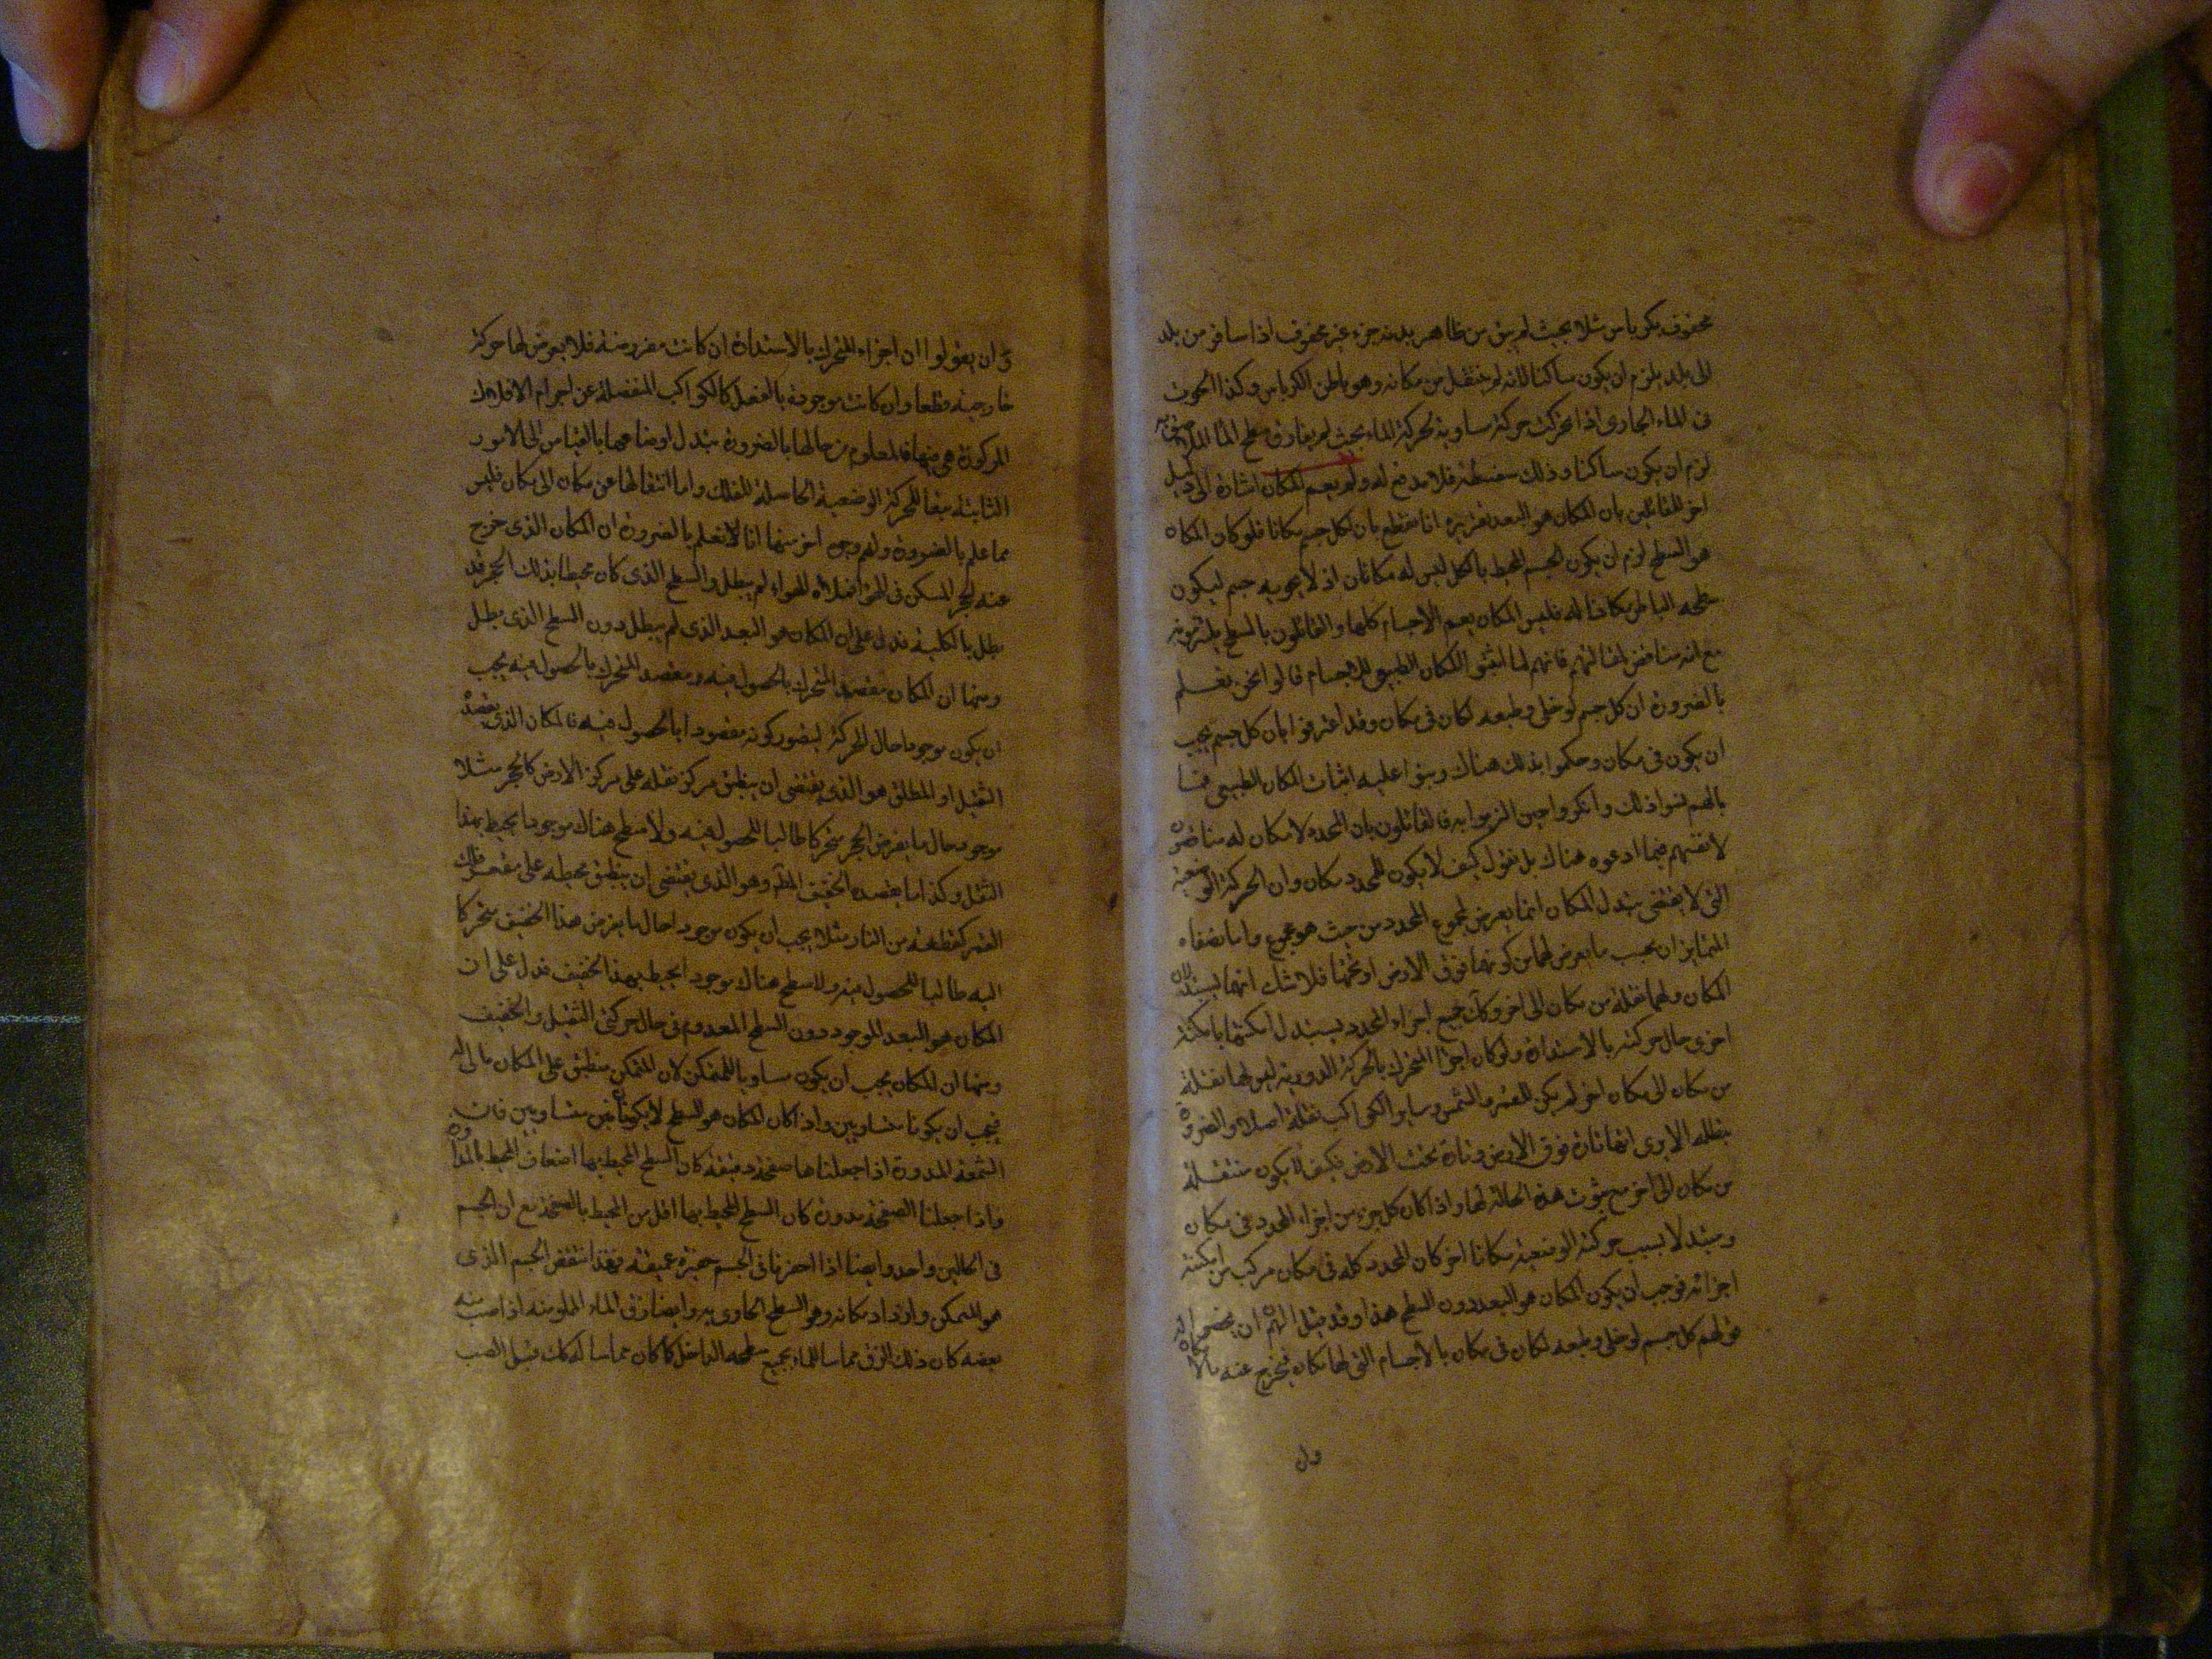 محفوف بكرباس مثلا بحيث لم يبق من ظاهر بدنه جزء غير محفوف اذا سافر من بلد
الى بلد يلزم ان يكون ساكنا لانه لم ينتقل من مكانه وهو باطن الكرباس وكذا الحوت
فى الماء الجارى اذا تحركت حركة مساوية لحركة الماء بحيث لم يفارق سطح الماء
لزم ان يكون ساكنا وذلك سفسطة فلا مدفع له ولم يعم المكان اشارة الى دليل
اخر للقائلين بان المكان هو البعد تقريره انا نقطع بان لكل جسم مكانا فلو كان المكان
هو السطح لزم ان يكون الجسم المحيط بالكل ليس له مكان اذ لا يحويه جسم ليكون
سطحه الباطن مكانا له فليس المكان يعم الاجسام كلها والقائلون بالسطح يلتزمونه
مع انه مناقض لمقالتهم فانهم لما اثبتوا المكان الطبيعى للاجسام قالوا نحن نعلم
بالضرورة ان كل جسم لو خلى وطبعه لكان فى مكان وقد اعترفوا بان كل جسم يجب
ان يكون فى مكان وحكموا بذلك هناك وبنوا عليه اثبات المكان الطبيعى فما
بالهم نسوا ذلك وانكروا حين الزموا به فالقائلون بان المحدد لا مكان له مناقضون
لانفسهم فيما ادعوه هناك بل نقول كيف لا يكون للمحدد مكان وان الحركة الوضعية
التى لا يقتضى تبدل المكان انما يعرض لمجموع المحدد من حيث هو مجموع واما نصفاه
المتمايزان بحسب ما يعرض لهما من كونهما فوق الارض او تحتها فلا شك انهما يستبدلان
المكان ولهما نقلة من مكان الى اخر وكذا جميع اجزاء المحدد يستبدل امكنتها بامكنة
اخرى حال حركته بالاستدارة ولو كان اجزاء المتحرك بالحركة الدورية ليس لها نقلة
من مكان الى مكان اخر لم يكن للقمر والشمس وساير الكواكب نقلة اصلا والضرورة
يبطله الا يرى انها تارة فوق الارض وتارة تحت الارض فكيف لا يكون منتقلة
من مكان الى اخر مع ثبوت هذه الحالة لها واذا كان كل جزء من اجزاء المحدد فى مكان
ويتبدل لا بسبب حركته الوضعية مكانا اخر كان المحدد كله فى مكان مركب من امكنة
اجزائه فوجب ان يكون المكان هو البعد دون السطح هذا وقد قيل لهم ان يخصصوا
قولهم كل جسم لو خلى وطبعه لكان فى مكان بالاجسام التى لها مكان فيخرج عنه
ول
ان يقولوا ان اجزاء المتحرك بالاستدارة ان كانت مفروضة فلا يعرض لها حركة
خارجية قطعا وان كانت موجودة بالفعل كالكواكب المنفصلة عن اجرام الافلاك
المركوزة هى فيها فالمعلوم من حالها بالضرورة تبدل اوضاعها بالقياس الى الامور
الثابتة تبعا للحركة الوضعية الحاصلة للفلك واما انتقالها عن مكان الى مكان فليس
مما علم بالضرورة ولهم وجوه اخر منها انا لا نعلم بالضرورة ان المكان الذى خرج
عنه الحجر المسكن فى الهواء فملاه الهواء لم يبطل والسطح الذى كان محيطا بذلك الحجر قد
بطل بالكلية فدل على ان المكان هو البعد الذى لم يبطل دون السطح الذى بطل
ومنها ان المكان مقصد المتحرك بالحصول فيه ومقصد المتحرك بالحصول فيه يجب
ان يكون موجودا حال الحركة ليتصور كونه مقصودا بالحصول فيه فالمكان الذى يقصده
الثقيل المطلق هو الذى يقتضى ان ينطبق مركز ثقله على مركز الارض كالحجر مثلا
موجود حال ما يفرض الحجر متحركا طالبا للحصول فيه ولا سطح هناك موجودا محيط بهذا
الثقل وكذا ما يقصده الخفيف المطلق وهو الذى يقتضى ان ينطبق محيطه على مقعر فلك
القمر كقطعة من النار مثلا يجب ان يكون موجودا حال ما يفرض هذا الخفيف متحركا
اليه طالبا للحصول فيه ولا سطح هناك موجودا يحيط بهذا الخفيف فدل على ان
المكان هو البعد الموجود دون السطح المعدوم فى حال حركتى الثقيل والخفيف
ومنها ان المكان يجب ان يكون مساويا للمتمكن لان المتمكن منطبق على المكان مالى له
فيجب ان يكونا متساويين واذا كان المكان هو السطح لا يكونان متساويين فان
الشمعة المدورة اذا جعلناها صفحة دقيقة كان السطح المحيط بها اضعاف المحيط بالمدورة
واذا جعلنا الصفحة مدورة كان السطح المحيط بها اقل من المحيط بالصفحة مع ان الجسم
فى الحالين واحد وايضا اذا احفرنا فى الجسم حفرة عميقة فقد انتقص الجسم الذى
هو المتمكن وازداد مكانه وهو السطح الحاوى به وايضا زق الماء المملو منه اذا صب منه
بعضه كان ذلك الزق مماسا للماء بجميع سطحه الداخل كما كان مماسا له كذلك قبل الصب